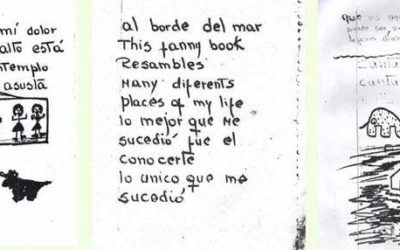 mí dolor
alto está
ntemplo
asusta
al borde del mar
This fanny book
Resambles
Many diferents
places of my life
lo mejor que me
sucedió fue el
conocerte
lo unico que me
sucedió
que es